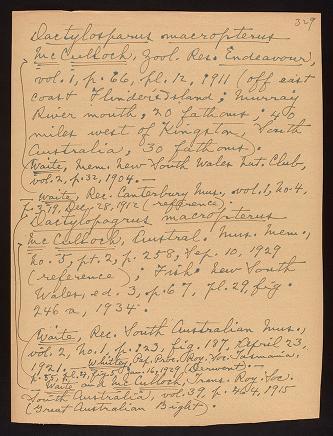 329
Dactylosparus macropterus
McCulloch, Zool. Res. Endeavour,
vol. 1, p. 66, pl. 12, 1911 (off east
coast Flinders Island; Murray
River mouth, 20 fathoms; 40
miles west of Kingston, South
Australia, 30 fathoms).
Waite, Mem. New South Wales Nat. Club,
vol. 2, p. 32, 1904. —
Waite, Rec. Canterbury Mus., vol. 1, no. 4,
1912 (reference).
Dactylopagrus macropterus
McCulloch, Austral. Mus. Mem.,
no. 5, pt. 2, p. 255, Sep. 10, 1929
(reference); Fish. New South
Wales, ed. 3, p. 67, pl. 29, fig.
246a, 1934.
Waite, Rec. South Australian Mus.,
vol. 2, no. 1, p. 123, fig. 187, April 23,
1921. — Whitley, Pap. Proc. Roy. Soc. Tasmania,
1929 (Derwent). —
Waite and McCulloch, Trans. Roy. Soc.
South Australia, vol. 39, p. 1915
(Great Australian Bight).